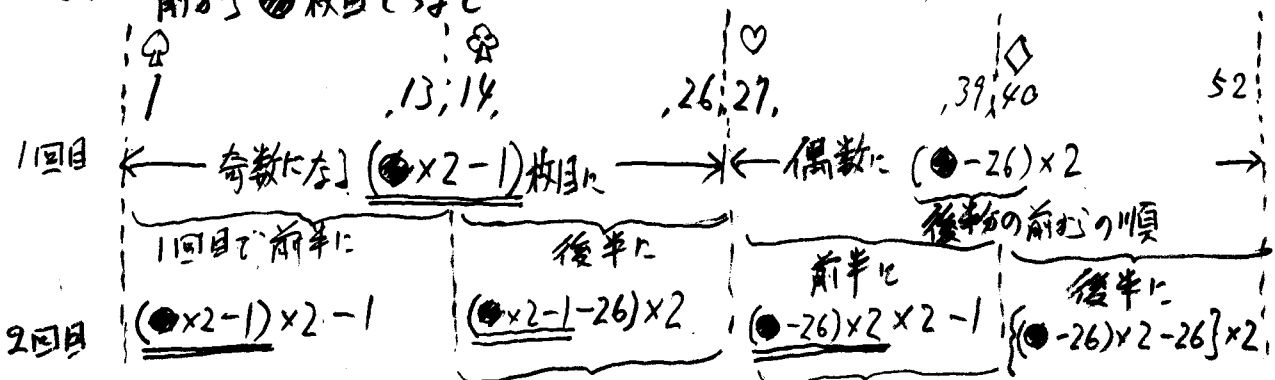 前から●枚目として
♤ ♧ ♡ ◇
1 ,13, 14, ,26, 27, ,39, 40 52
1回目 奇数になる (●×2-1)枚目に 偶数に (●-26)×2
後半分の前からの順
1回目で前半に 後半に 前半に 後半に
2回目 (●×2-1)×2-1 (●×2-1-26)×2 (●-26)×2×2-1 {(●-26)×2-26}×2